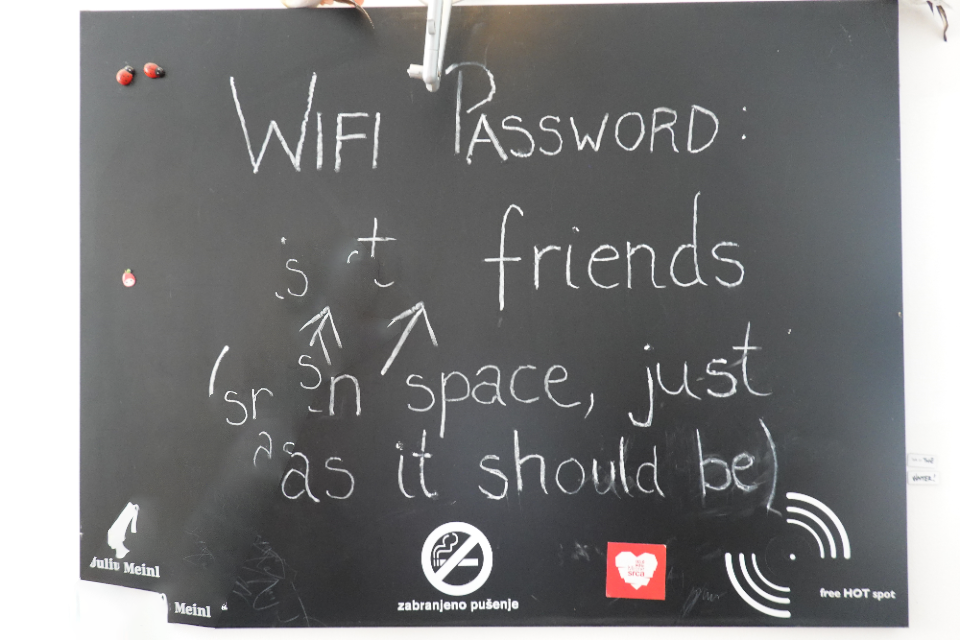 WIFI PASSWORD:
friends
space, just
as it should be)
Julius Meinl
Meinl
zabranjeno pušenje
srca
free HOT spot